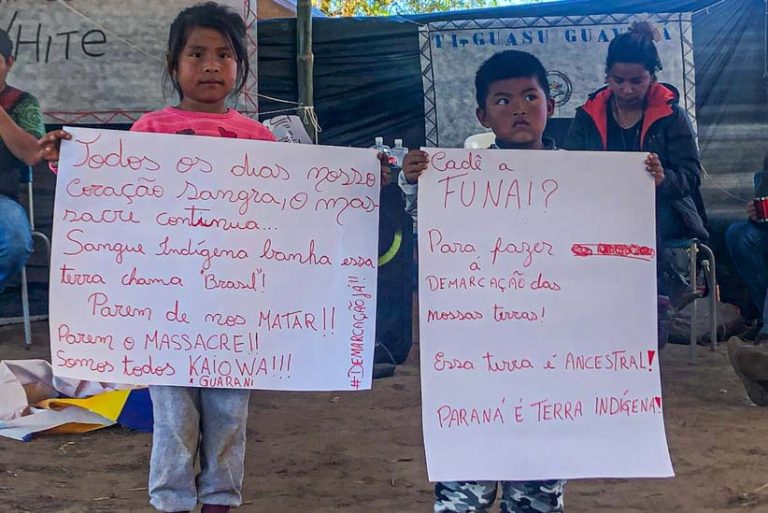 White
T.I. GUASU GUAVIRÁ
Todos os dias nosso
coração sangra, o mas-
sacre continua...
Sangue Indígena banha essa
terra chama "Brasil"!
Parem de nos MATAR!!
Parem o MASSACRE!!
Somos todos KAIOWA!!!
E GUARANI
#DEMARCAÇÃO JÁ!!
Cadê a
FUNAI?
Para fazer
á
DEMARCAÇÃO das
nossas terras!
Essa terra é ANCESTRAL!
PARANÁ É TERRA INDÍGENA!